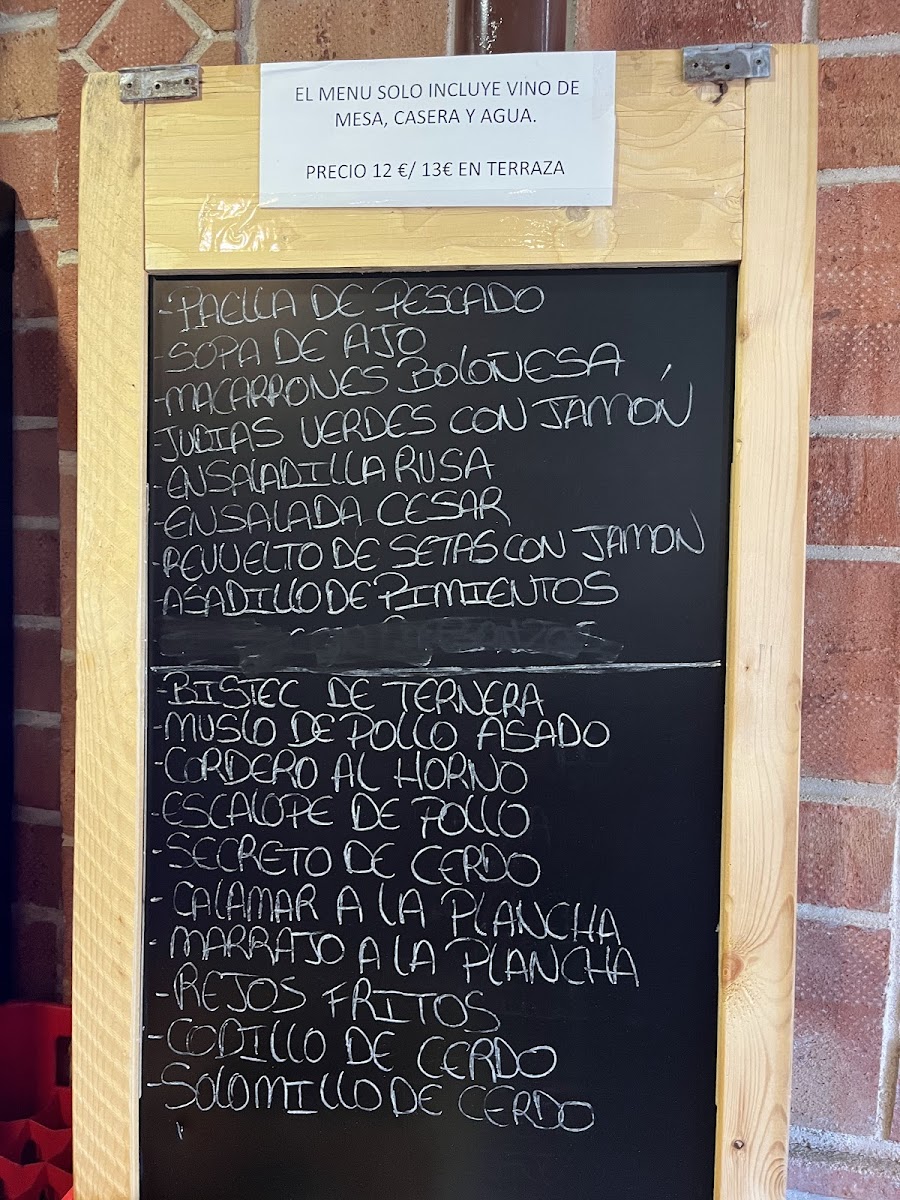 EL MENU SOLO INCLUYE VINO DE
MESA, CASERA Y AGUA.
PRECIO 12 €/ 13€ EN TERRAZA
-PAELLA DE PESCADO
-SOPA DE AJO
-MACARRONES BOLOÑESA
-JUDIAS VERDES CON JAMÓN
-ENSALADILLA RUSA
-ENSALADA CESAR
-REVUELTO DE SETAS CON JAMON
-ASADILLO DE PIMIENTOS
-BISTEC DE TERNERA
-MUSLO DE POLLO ASADO
-CORDERO AL HORNO
-ESCALOPE DE POLLO
-SECRETO DE CERDO
-CALAMAR A LA PLANCHA
-MARRAJO A LA PLANCHA
-REJOS FRITOS
-CODILLO DE CERDO
-SOLOMILLO DE CERDO